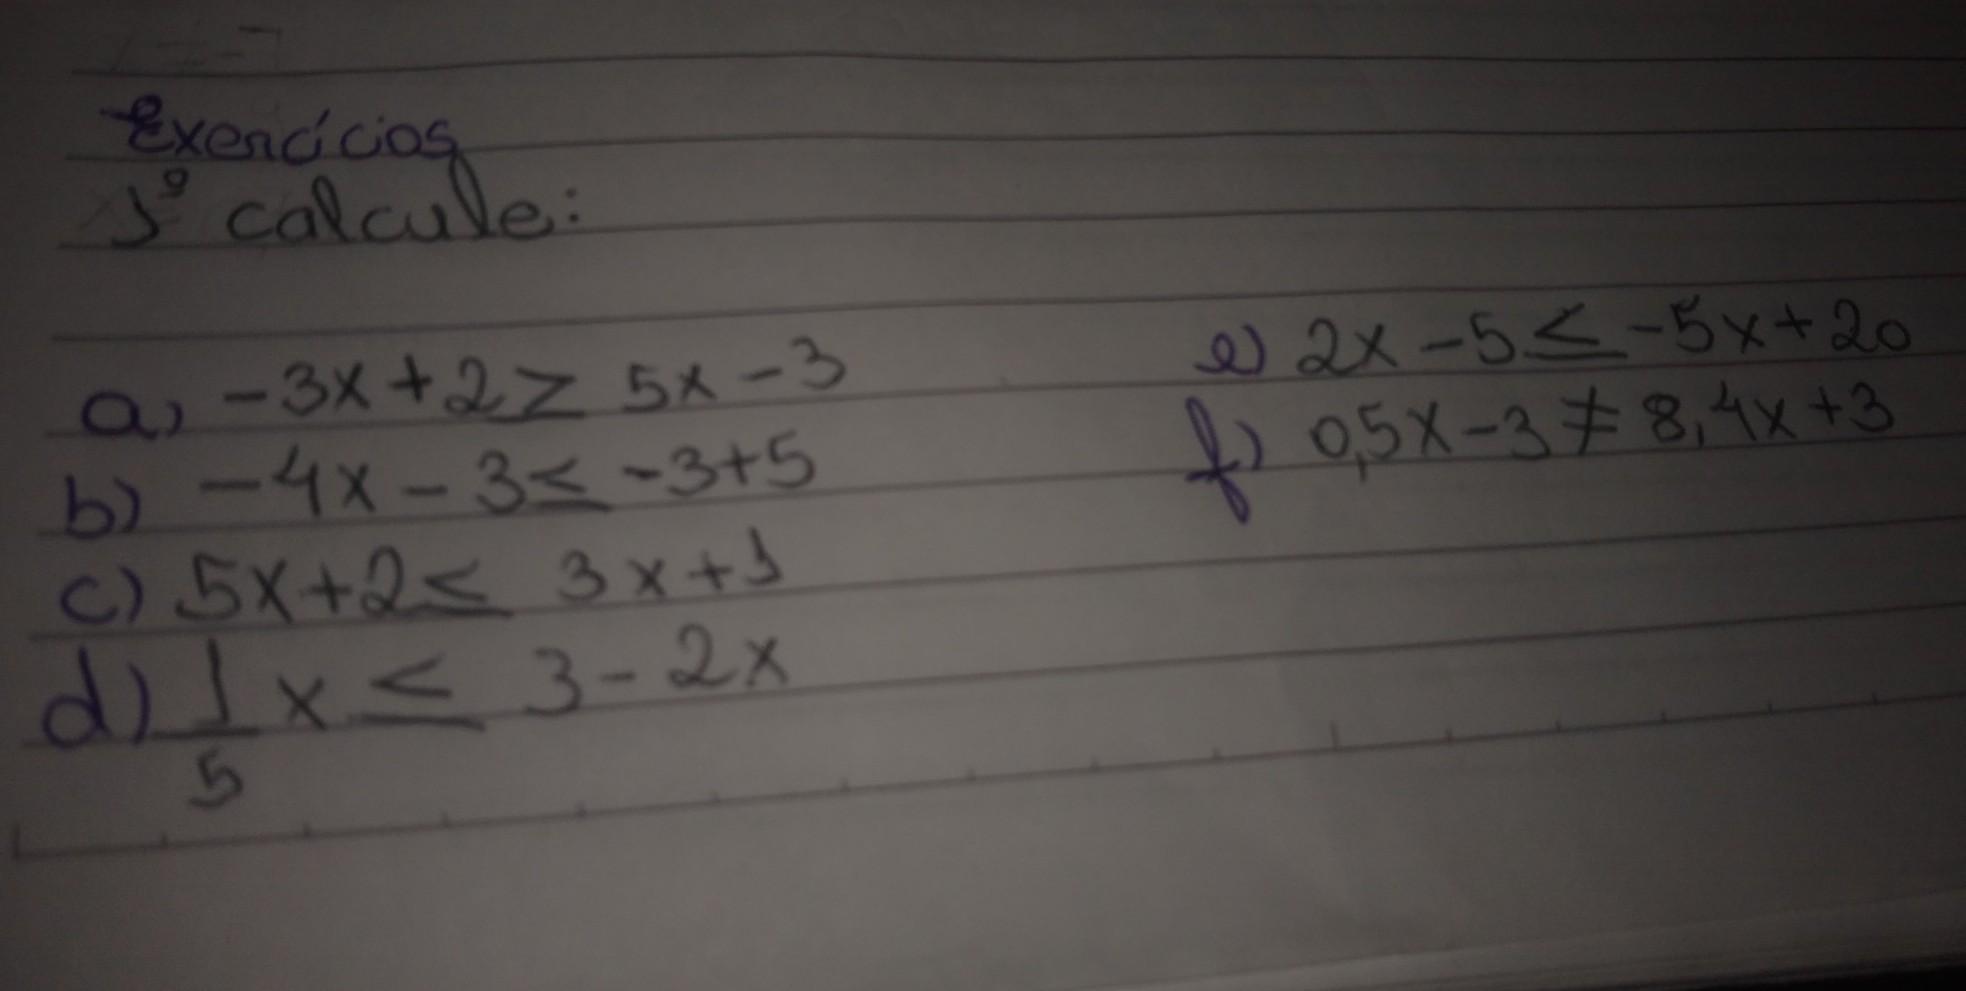 Exercícios
1º calcule:
a) -3x+2 ≥ 5x-3
b) -4x-3 ≤ -3+5
c) 5x+2 ≤ 3x+1
d) 1/5 x ≤ 3-2x
e) 2x-5 ≤ -5x+20
f) 0,5x-3 ≠ 8,4x+3